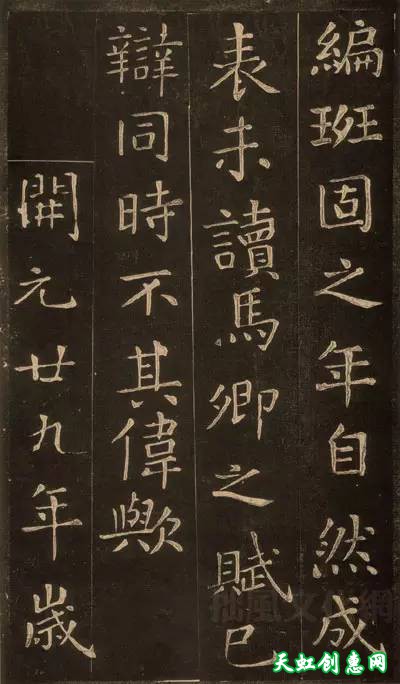 編班固之年自然成
表未讀馬卿之賦已
辯同時不其偉歟
開元廿九年歲
天虹创意网